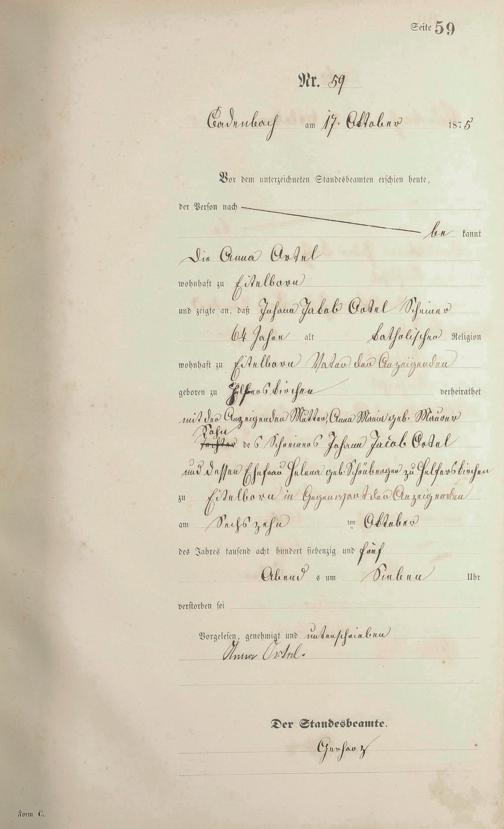 Seite 59
Nr. 59
Cadenbach am 17. Oktober 1875
Vor dem unterzeichneten Standesbeamten erschien heute,
der Person nach
be kannt
die Anna Ortel
wohnhaft zu Eitelborn
und zeigte an, daß Johann Jakob Ortel Schreiner
64 Jahre alt katholischer Religion
wohnhaft zu Eitelborn Vater der Anzeigenden
geboren zu Helferskirchen verheirathet
mit der Anzeigenden Mutter, Anna Maria geb. Maurer
Sohn
Tochter des Schreiners Johann Jacob Ortel
und dessen Ehefrau Helena geb. Schönberger zu Helferskirchen
zu Eitelborn in Gegenwart der Anzeigenden
am Sechszehn ten Oktober
des Jahres tausend acht hundert siebenzig und fünf
Abend s um Sieben Uhr
verstorben sei
Vorgelesen, genehmigt und unterschrieben
Anna Ortel.
Der Standesbeamte.
Gerharz
Form C.